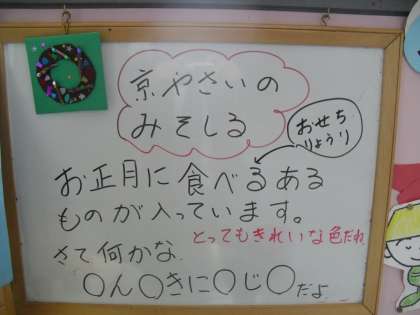 京やさいの
みそしる
おせち
りょうり
お正月に食べるある
ものが入っています。
とってもきれいな色だね
さて何かな
〇ん〇きに〇じ〇だよ